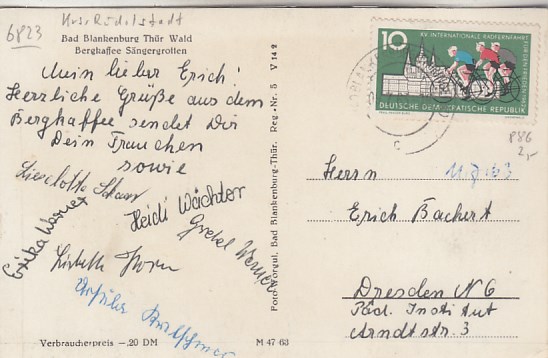 6823
Krs. Rudolstadt
Bad Blankenburg Thür Wald
Bergkaffee Sängergrotten
Mein lieber Erich!
Herzliche Grüße aus dem
Bergkaffee sendet Dir
Dein Frauchen
sowie
Lieselotte
Heidi Wächter
Erika Werner
Gretel Werner
Lisbeth Horn
Verbraucherpreis -,20 DM
M 47 63
Foto-Worgul, Bad Blankenburg-Thür. Reg.-Nr. 5 V 14 2
10
XV. INTERNATIONALE RADFERNFAHRT
FÜR DEN FRIEDEN 1962
DEUTSCHE DEMOKRATISCHE REPUBLIK
c
886
2,-
Herrn
Erich Bachert
Dresden N 6
Päd. Institut
Arndtstr. 3